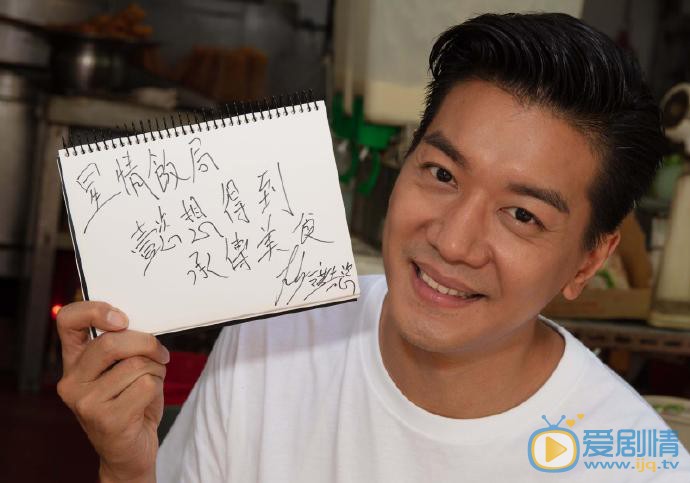 星情飯局
懿想得到
承傳美食
爱剧情
www.ijq.tv